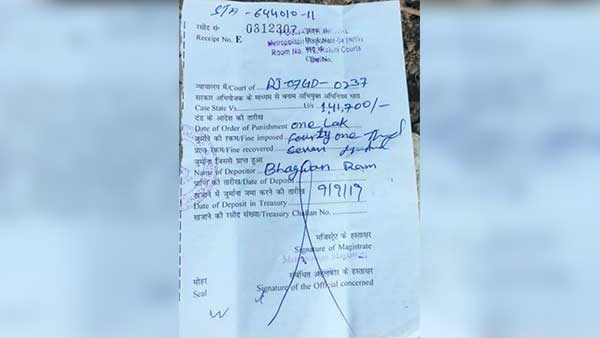 STA-644010-11
रसीद सं-
Receipt No. E 0312307
Metropolitan
Room No.
न्यायालय में/Court of RJ-07GD-0237
सरकार अभियोजक के माध्यम से बनाम अभियुक्त अधिनियम धारा
Case State Vs. U/s 1,41,700/-
दंड के आदेश की तारीख
Date of Order of Punishment one Lak
जुर्माने की रकम/Fine imposed fourty one
प्राप्त रकम/Fine recovered seven
जुर्माना जिससे प्राप्त हुआ
Name of Depositor Bhagwan Ram
प्राप्ति की तारीख/Date of Deposit
खजाने में जुर्माना जमा करने की तारीख 9/9/19
Date of Deposit in Treasury
खजाने की रसीद संख्या/Treasury Challan No.
मजिस्ट्रेट के हस्ताक्षर
Signature of Magistrate
संबंधित अहलकार के हस्ताक्षर
मोहर
Seal Signature of the Official concerned